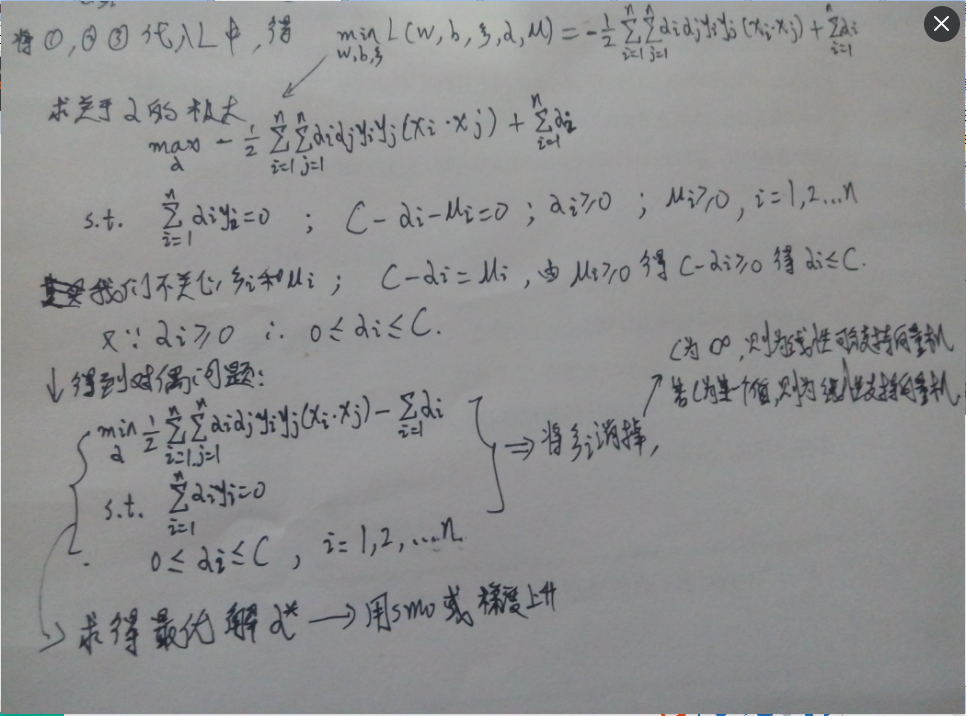 将①,②③代入L中,得 min_{w,b,ξ} L(w,b,ξ,α,μ) = -\frac{1}{2} \sum_{i=1}^{n} \sum_{j=1}^{n} α_i α_j y_i y_j (x_i·x_j) + \sum_{i=1}^{n} α_i
求关于α的极大
max_α -\frac{1}{2} \sum_{i=1}^{n} \sum_{j=1}^{n} α_i α_j y_i y_j (x_i·x_j) + \sum_{i=1}^{n} α_i
s.t. \sum_{i=1}^{n} α_i y_i = 0 ; C-α_i-μ_i=0 ; α_i≥0 ; μ_i≥0, i=1,2...n
我们不关心ξ_i和μ_i ; C-α_i=μ_i, 由μ_i≥0 得 C-α_i≥0 得 α_i≤C.
又∵ α_i≥0 ∴ 0≤α_i≤C.
↓得到对偶问题:
min_α \frac{1}{2} \sum_{i=1}^{n} \sum_{j=1}^{n} α_i α_j y_i y_j (x_i·x_j) - \sum_{i=1}^{n} α_i
s.t. \sum_{i=1}^{n} α_i y_i = 0
0≤α_i≤C, i=1,2,...n.
⇒将ξ_i消掉,
C为∞,则为线性可分支持向量机
若C为某一个值,则为线性支持向量机
求得最优解α* → 用smo或梯度上升